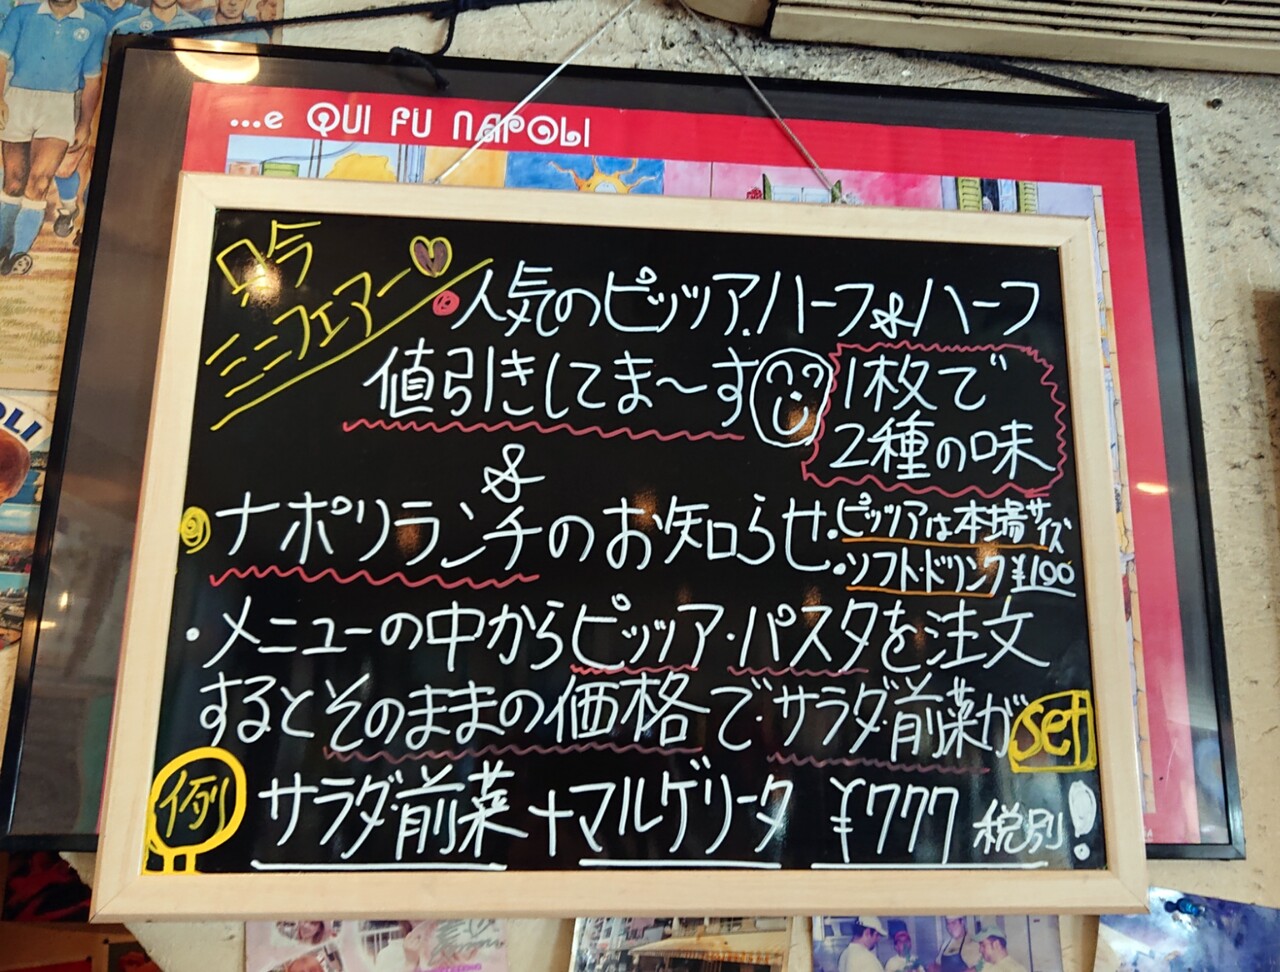 ...e QUI FU NAPOLI
只今
ミニフェアー
人気のピッツァ.ハーフ&ハーフ
値引きしてま〜す
1枚で
2種の味
&
ナポリランチのお知らせ
・ピッツァは本場サイズ
・ソフトドリンク¥100
・メニューの中からピッツァ・パスタを注文
するとそのままの価格でサラダ・前菜が set
例 サラダ・前菜+マルゲリータ ¥777 税別!
OLI